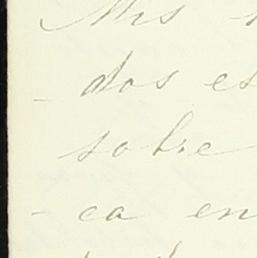 Mis
- dos es
sobre
- ca en